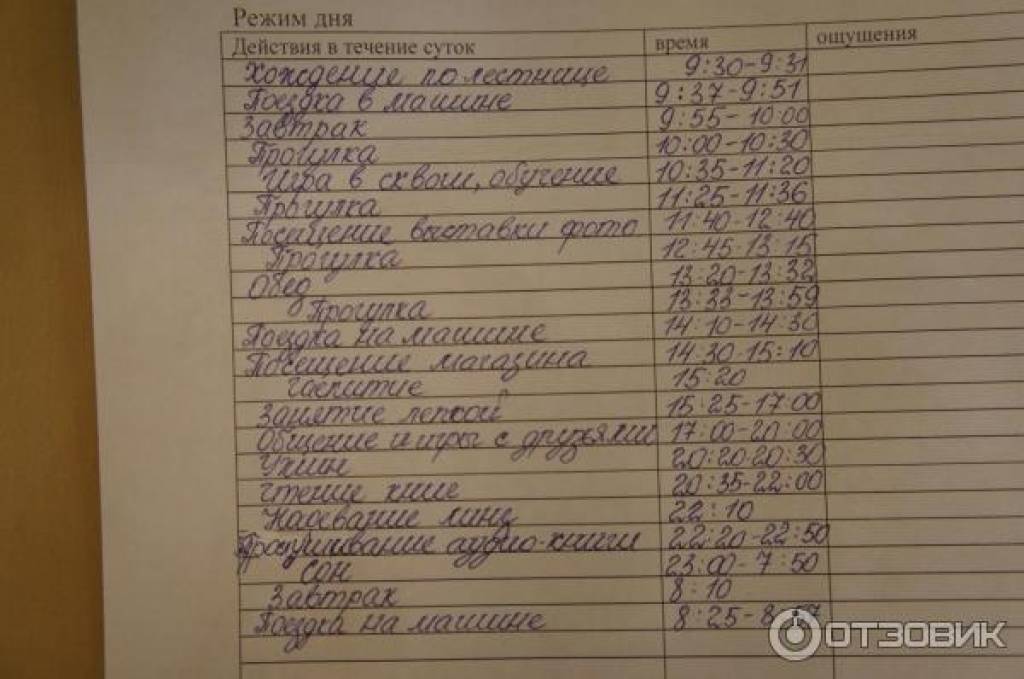 Режим дня
Действия в течение суток время ощушения
Хождение по лестнице 9:30-9:31
Поездка в машине 9:37-9:51
Завтрак 9:55-10:00
Прогулка 10:00-10:30
Игра в сквош, обучение 10:35-11:20
Прогулка 11:25-11:36
Посещение выставки фото 11:40-12:40
Прогулка 12:45-13:15
Обед 13:20-13:32
Прогулка 13:33-13:59
Поездка на машине 14:10-14:30
Посещение магазина 14:30-15:10
Чаепитие 15:20
Занятие лепкой 15:25-17:00
Общение и игры с друзьями 17:00-20:00
Ужин 20:20-20:30
Чтение книг 20:35-22:00
Надевание линз 22:10
Прослушивание аудио-книги 22:20-22:50
Сон 23:00-7:50
Завтрак 8:10
Поездка на машине 8:25-
ОТЗОВИК